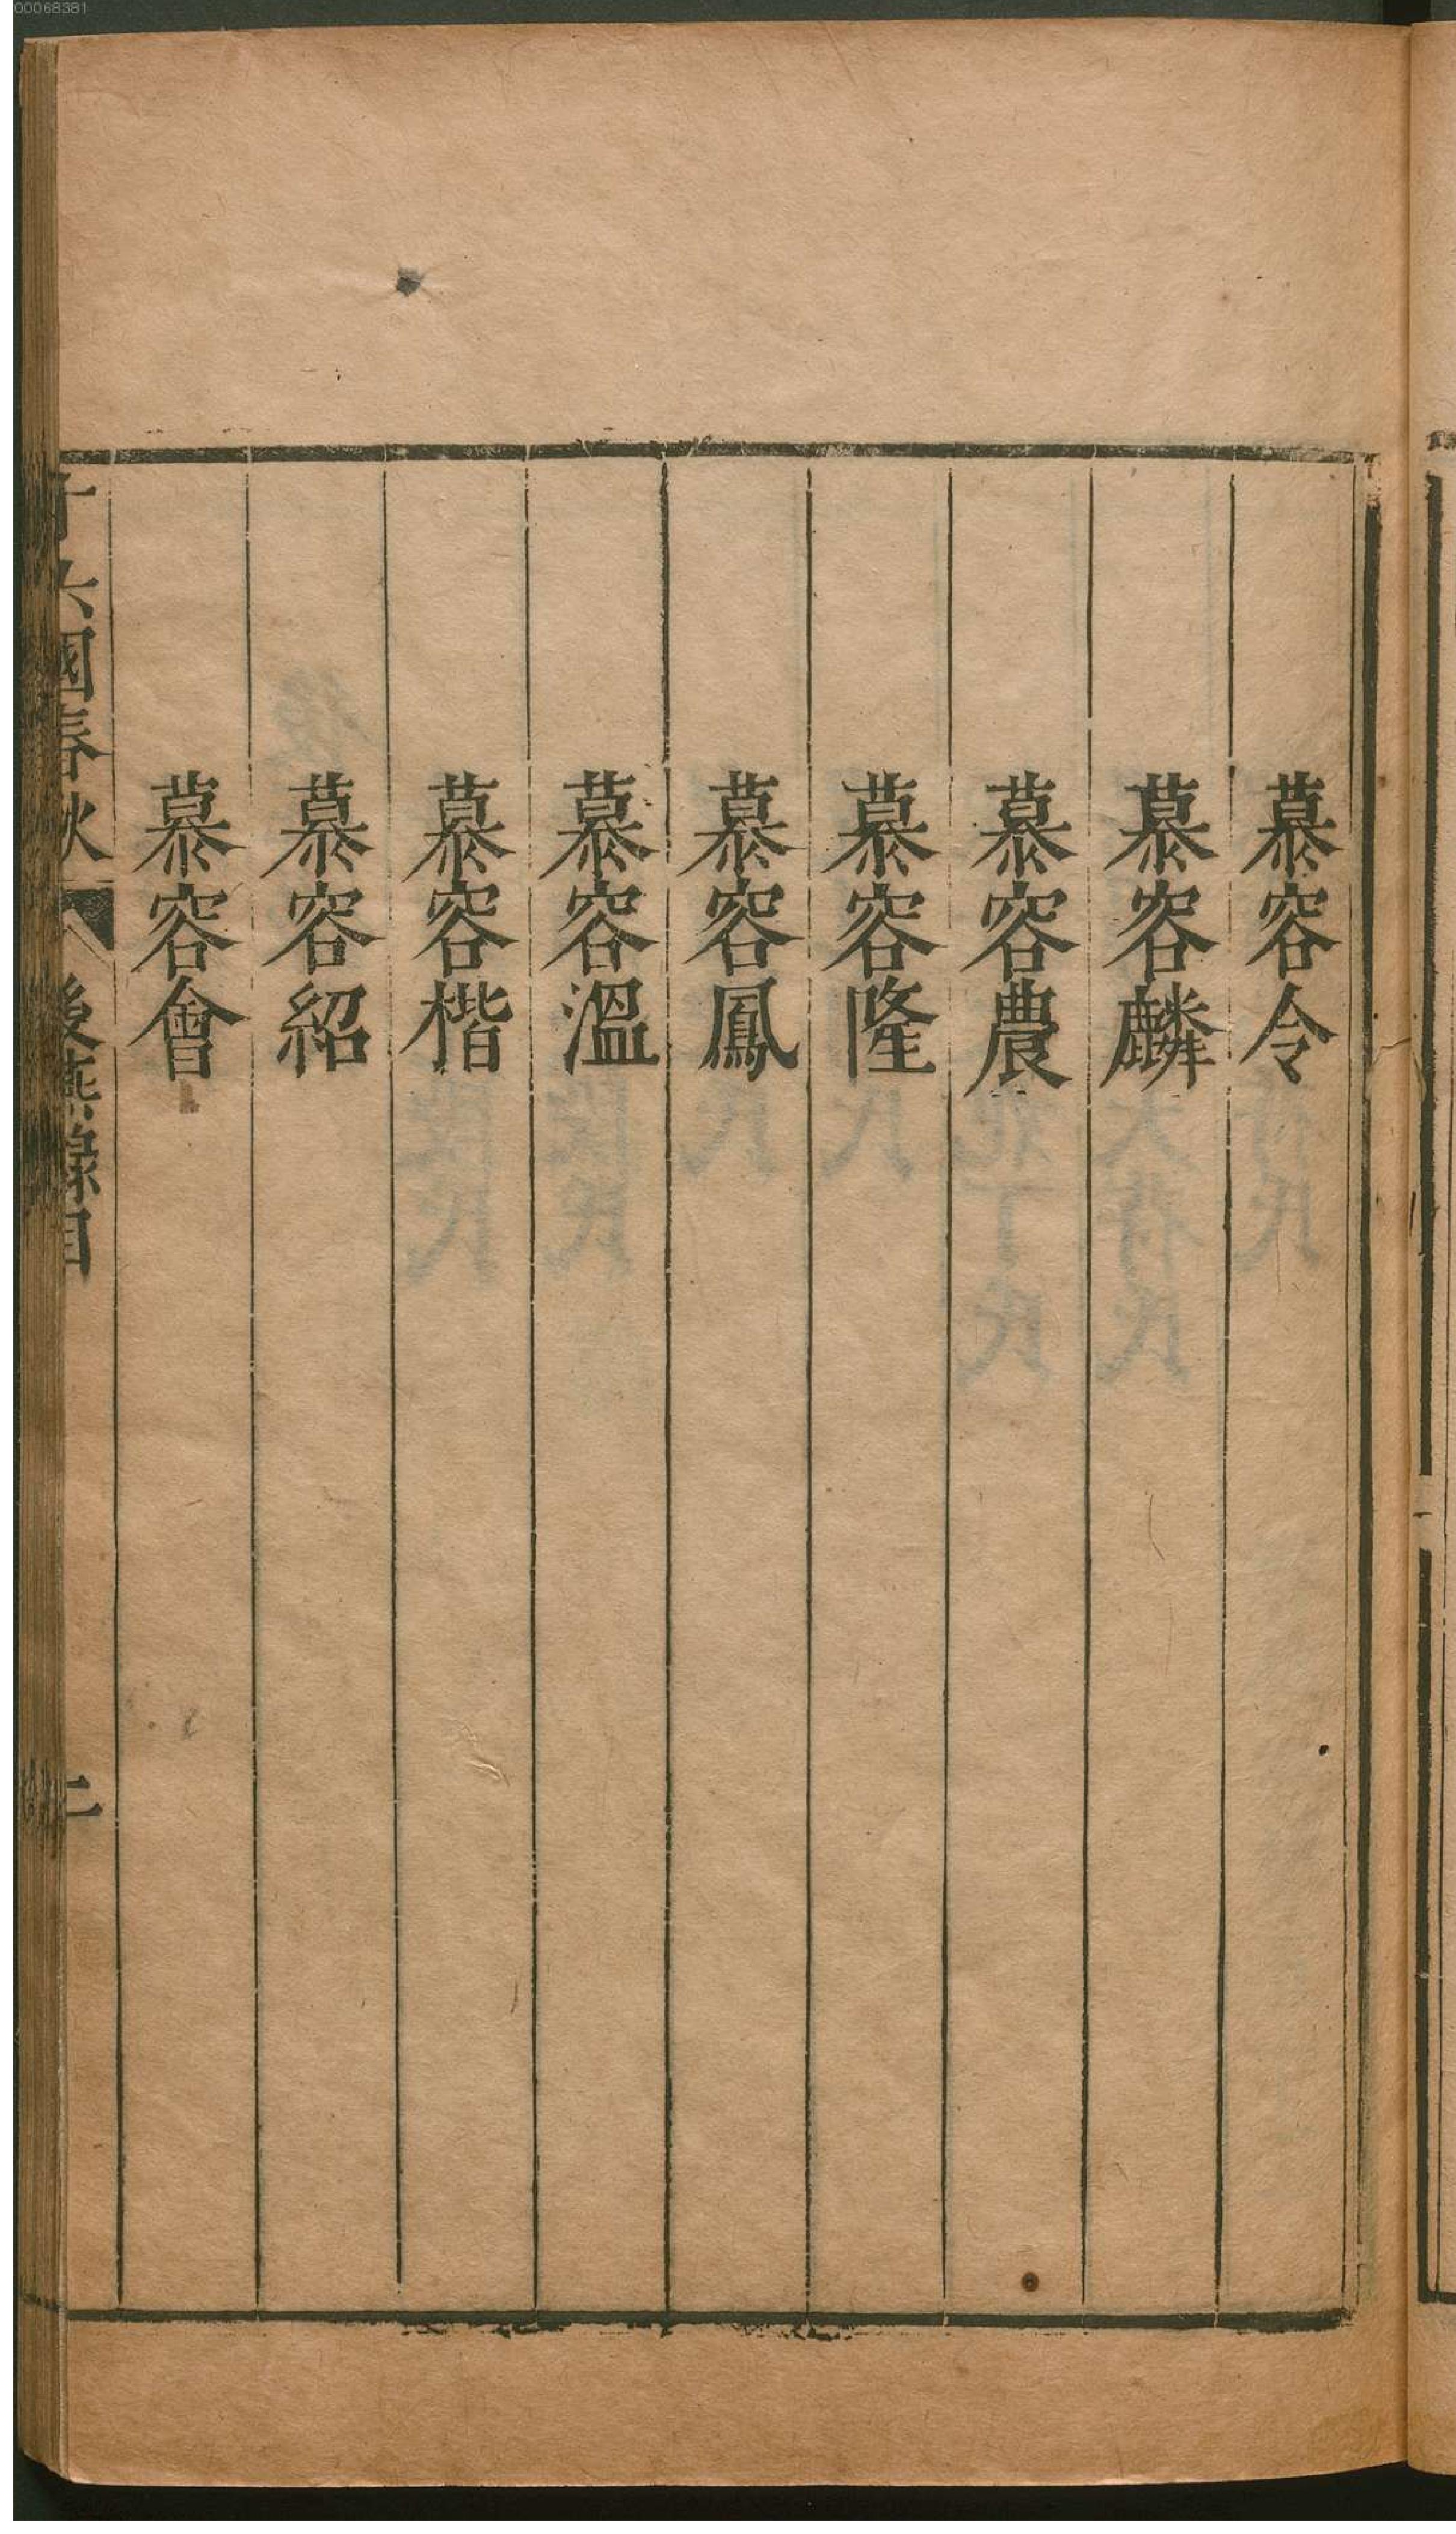 00068381
慕容令
慕容麟
慕容農
慕容隆
慕容鳳
慕容溫
慕容楷
慕容紹
慕容會
十六國春秋
後燕錄目
二